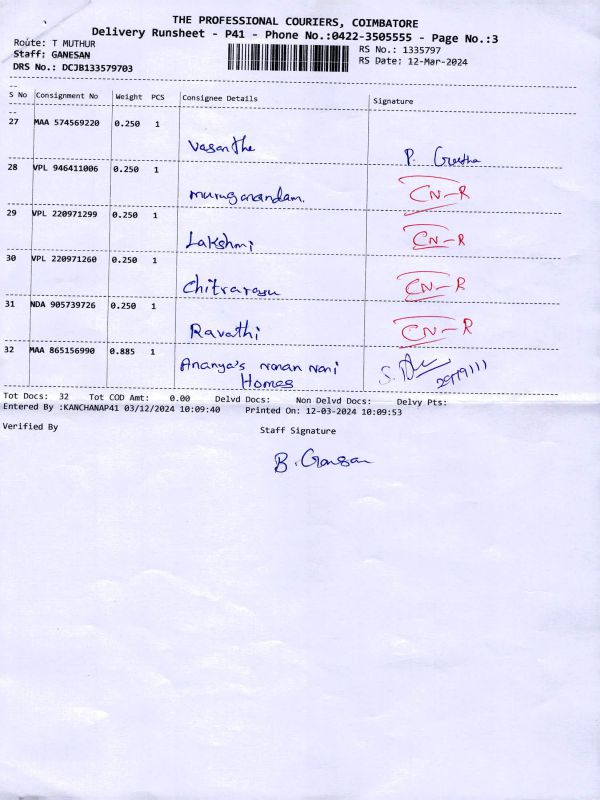 THE PROFESSIONAL COURIERS, COIMBATORE
Delivery Runsheet - P41 - Phone No.:0422-3505555 - Page No.:3
Route: T MUTHUR
RS No.: 1335797
Staff: GANESAN
RS Date: 12-Mar-2024
DRS No.: DCJB133579703
S No Consignment No Weight PCS Consignee Details Signature
27 MAA 574569220 0.250 1
Vasantha P. Geetha
28 VPL 946411006 0.250 1
Muruganandam. CN-R
29 VPL 220971299 0.250 1
Lakshmi CN-R
30 VPL 220971260 0.250 1
Chitrarasu CN-R
31 NDA 905739726 0.250 1
Ravathi CN-R
32 MAA 865156990 0.885 1
Ananya's nanan nani
Homes
Tot Docs: 32 Tot COD Amt: 0.00 Delvd Docs: Non Delvd Docs: Delvy Pts:
Entered By :KANCHANAP41 03/12/2024 10:09:40 Printed On: 12-03-2024 10:09:53
Verified By Staff Signature
B. Ganesan